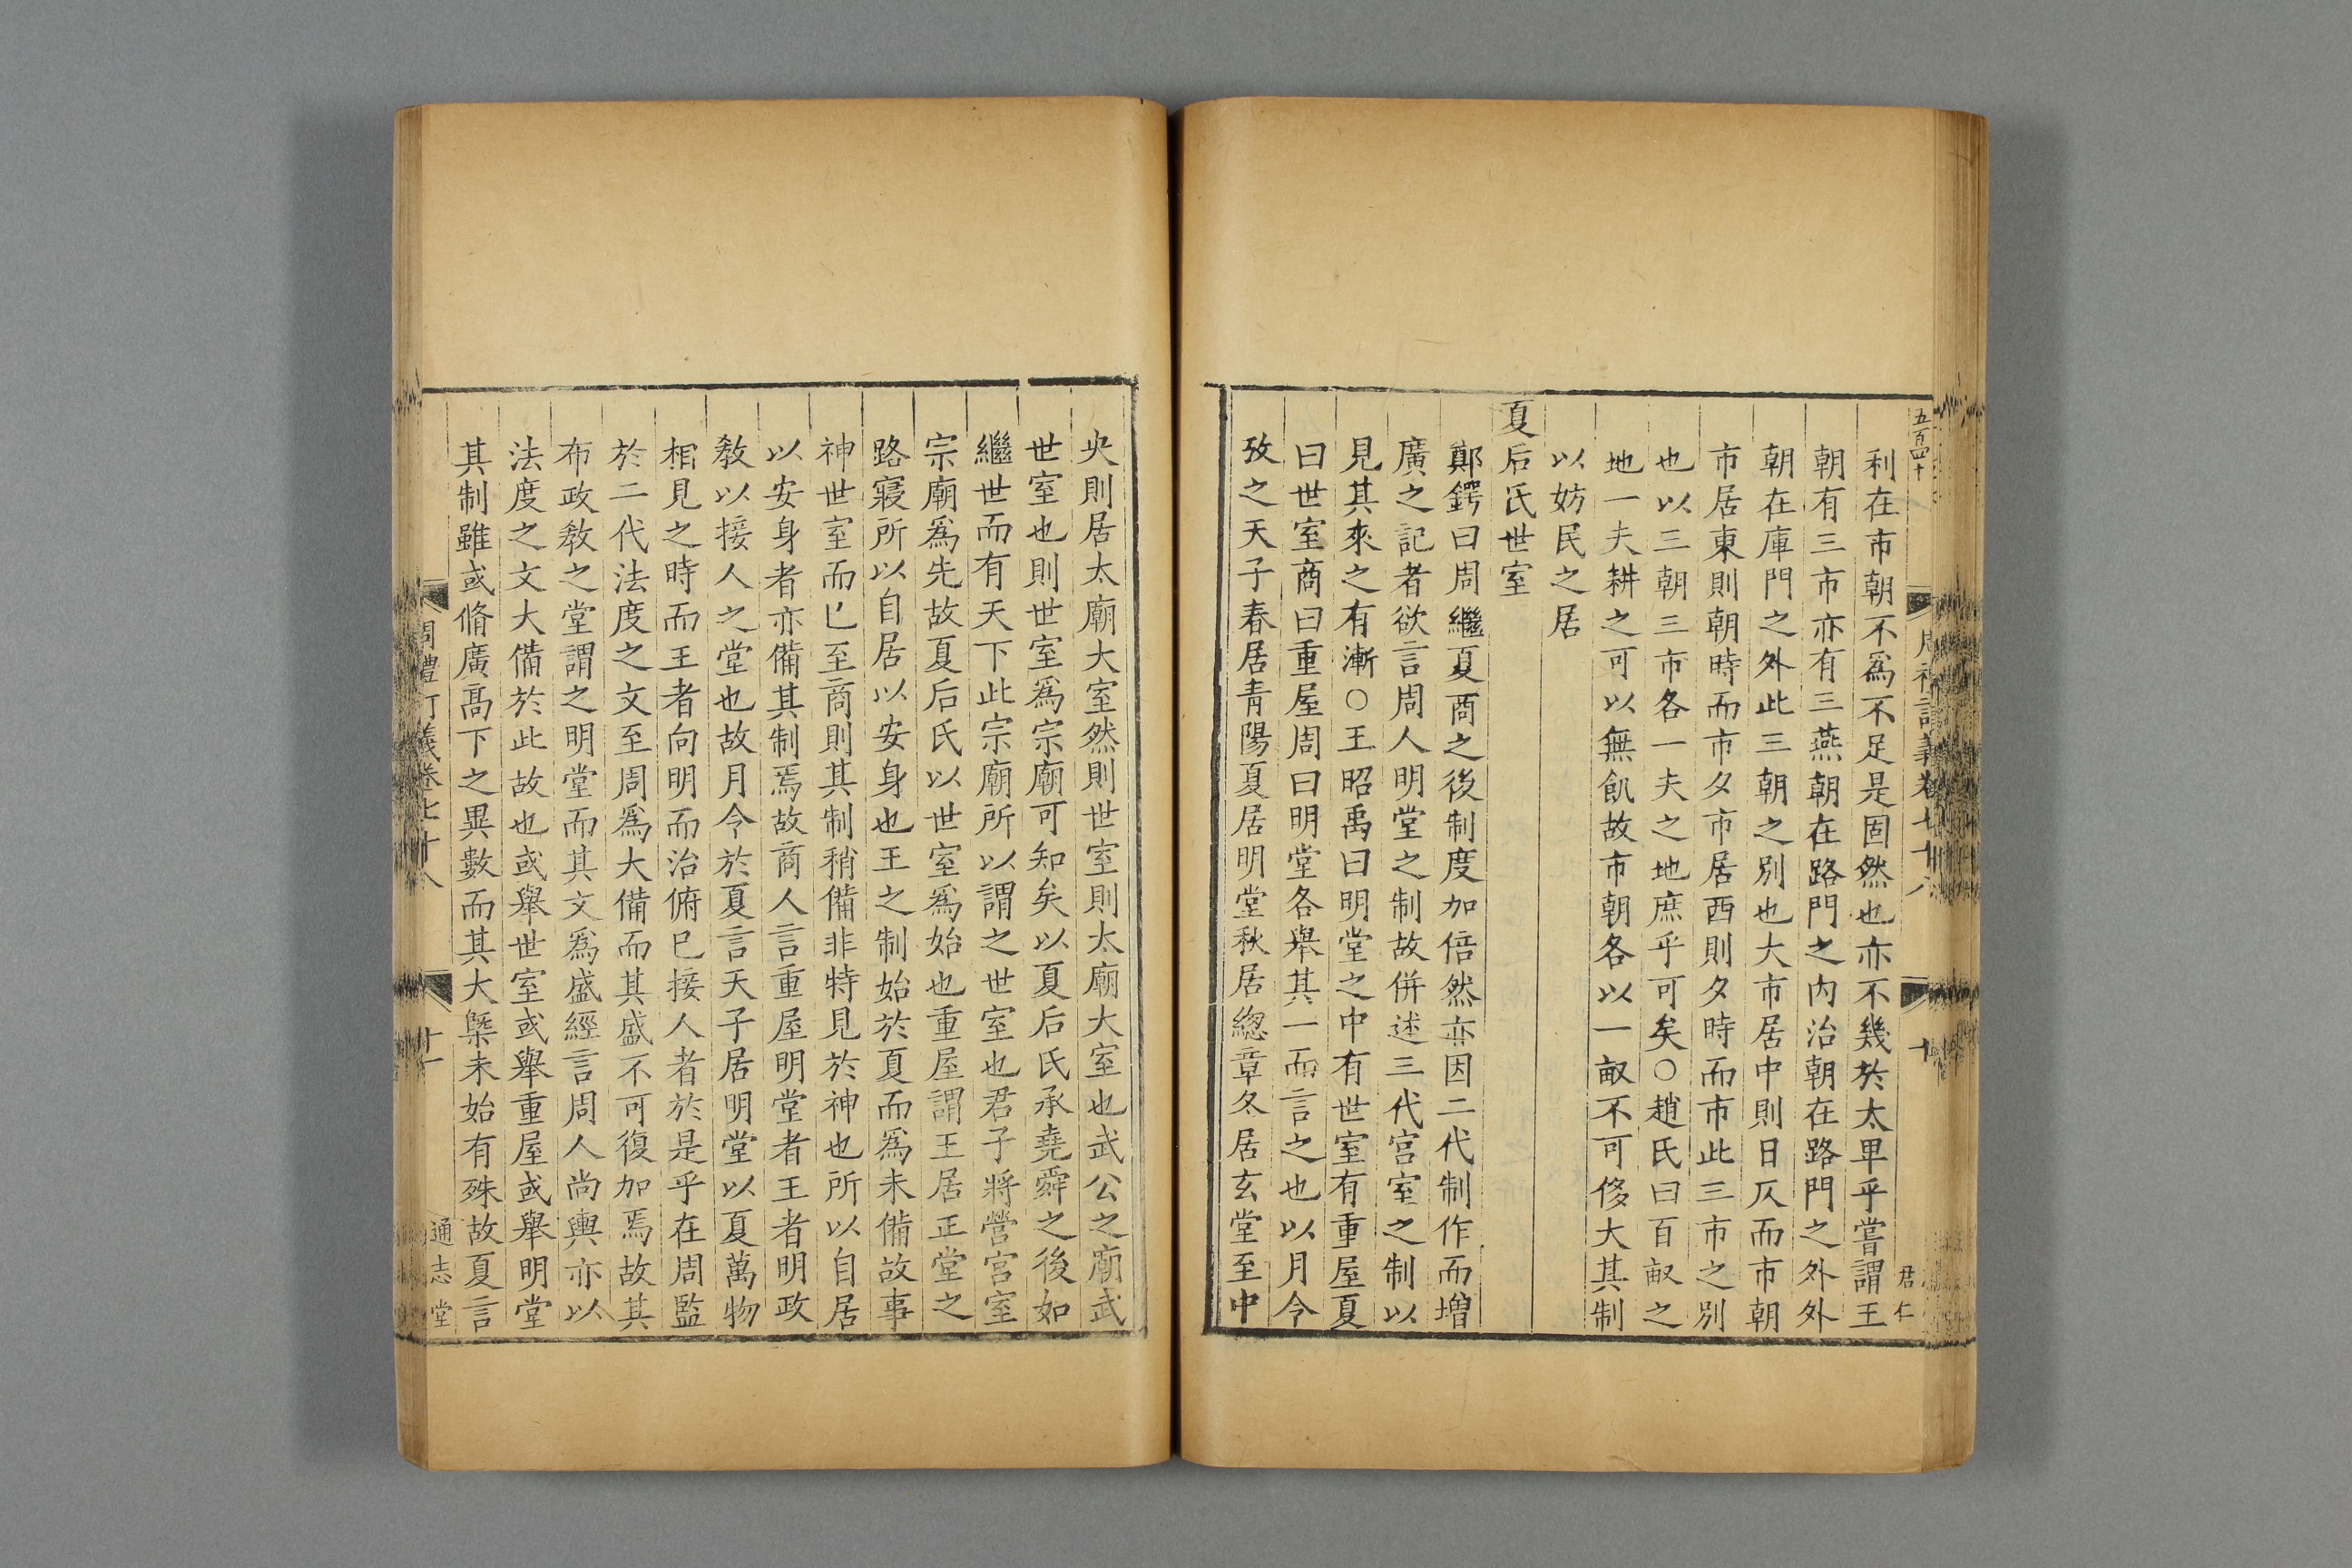 五百四十
周禮訂義卷七十八
十
君仁
利在市朝不爲不足是固然也亦不幾於太卑乎嘗謂王
朝有三市亦有三燕朝在路門之内治朝在路門之外外
朝在庫門之外此三朝之别也大市居中則日仄而市朝
市居東則朝時而市夕市居西則夕時而市此三市之别
也以三朝三市各一夫之地庶乎可矣○趙氏曰百畝之
地一夫耕之可以無飢故市朝各以一畝不可侈大其制
以妨民之居
夏后氏世室
鄭鍔曰周繼夏商之後制度加倍然亦因二代制作而増
廣之記者欲言周人明堂之制故併述三代宫室之制以
見其來之有漸○王昭禹曰明堂之中有世室有重屋夏
曰世室商曰重屋周曰明堂各舉其一而言之也以月令
攷之天子春居青陽夏居明堂秋居緫章冬居玄堂至中
央則居太廟大室然則世室則太廟大室也武公之廟武
世室也則世室爲宗廟可知矣以夏后氏承堯舜之後如
繼世而有天下此宗廟所以謂之世室也君子將營宫室
宗廟爲先故夏后氏以世室爲始也重屋謂王居正堂之
路寢所以自居以安身也王之制始於夏而爲未備故事
神世室而已至商則其制稍備非特見於神也所以自居
以安身者亦備其制焉故商人言重屋明堂者王者明政
敎以接人之堂也故月令於夏言天子居明堂以夏萬物
相見之時而王者向明而治俯已接人者於是乎在周監
於二代法度之文至周爲大備而其盛不可復加焉故其
布政敎之堂謂之明堂而其文爲盛經言周人尚輿亦以
法度之文大備於此故也或舉世室或舉重屋或舉明堂
其制雖或脩廣高下之異數而其大槩未始有殊故夏言
周禮訂義卷七十八
十一
通志堂